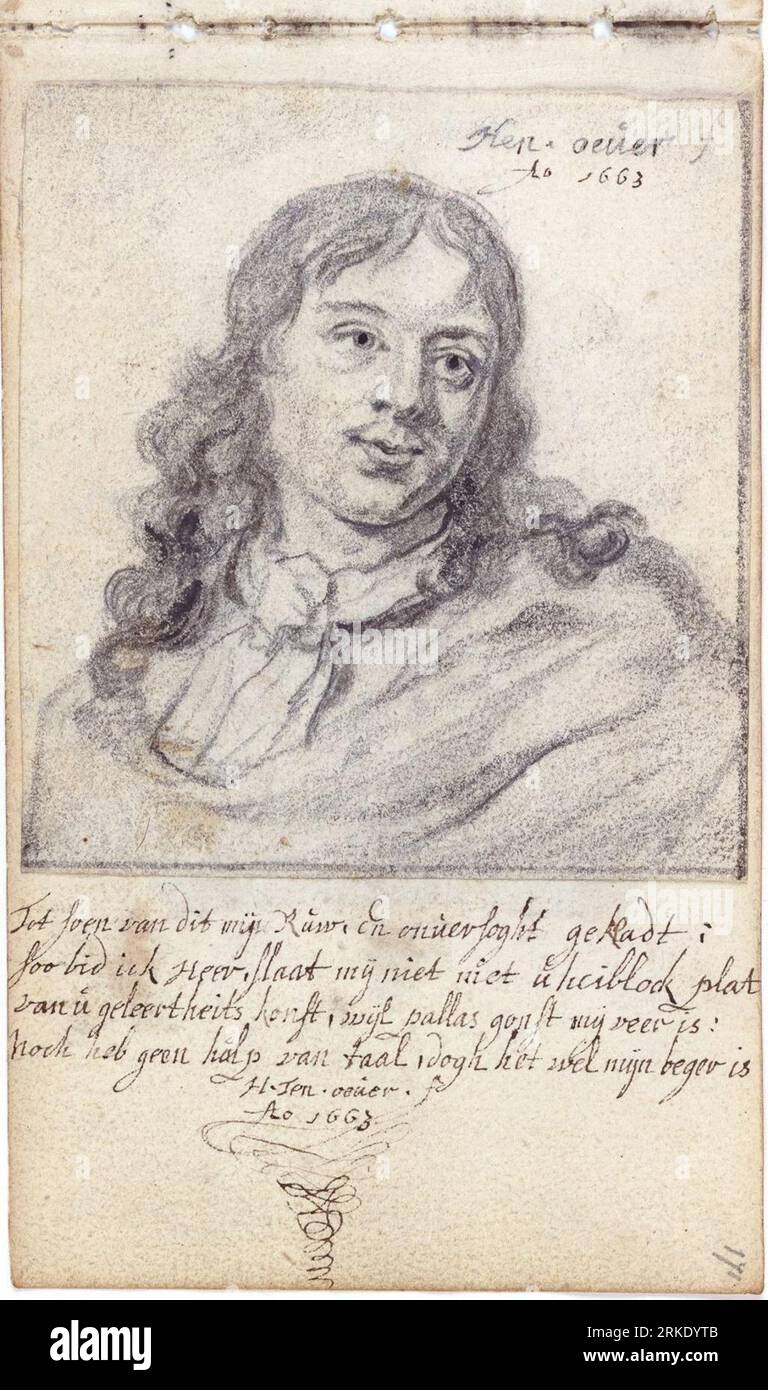 Hen. oeùer f
Ao 1663
Tot soen van dit mijn Rùw, en onùersoght geKladt;
soo bid ick Heer, slaat mij niet niet ù heiblock plat
van ù geleertheits konst, wijl pallas gonst mij veer is:
Noch heb geen hùlp van taal, dogh het wel mijn beger is
H. Ten. oeùer. f
Ao 1663
alamy
Image ID: 2RKDYTB
www.alamy.com